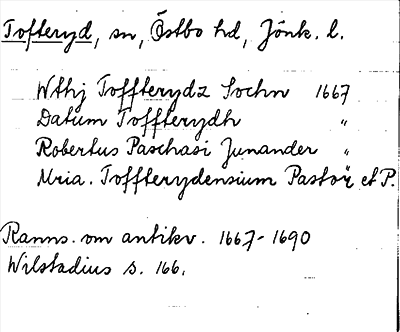 Tofteryd, sn, Östbo hd, Jönk. l.
Wthj Toffterydz Sochn 1667
Datum Toffterydh "
Robertus Paschasi Junander "
Mria. Toffterydensium Pastor et P.
Ranns. om antikv. 1667-1690
Wilstadius s. 166.